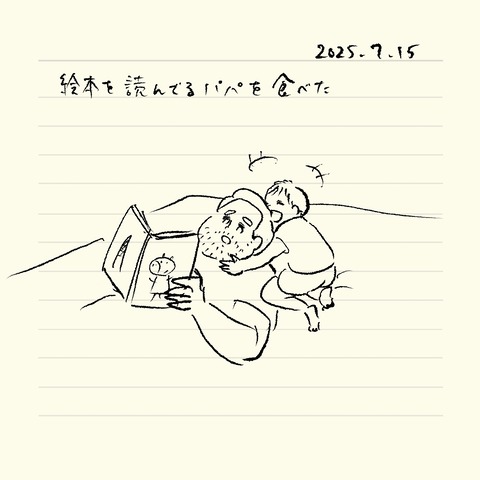 2025.7.15
絵本を読んでるパパを食べた